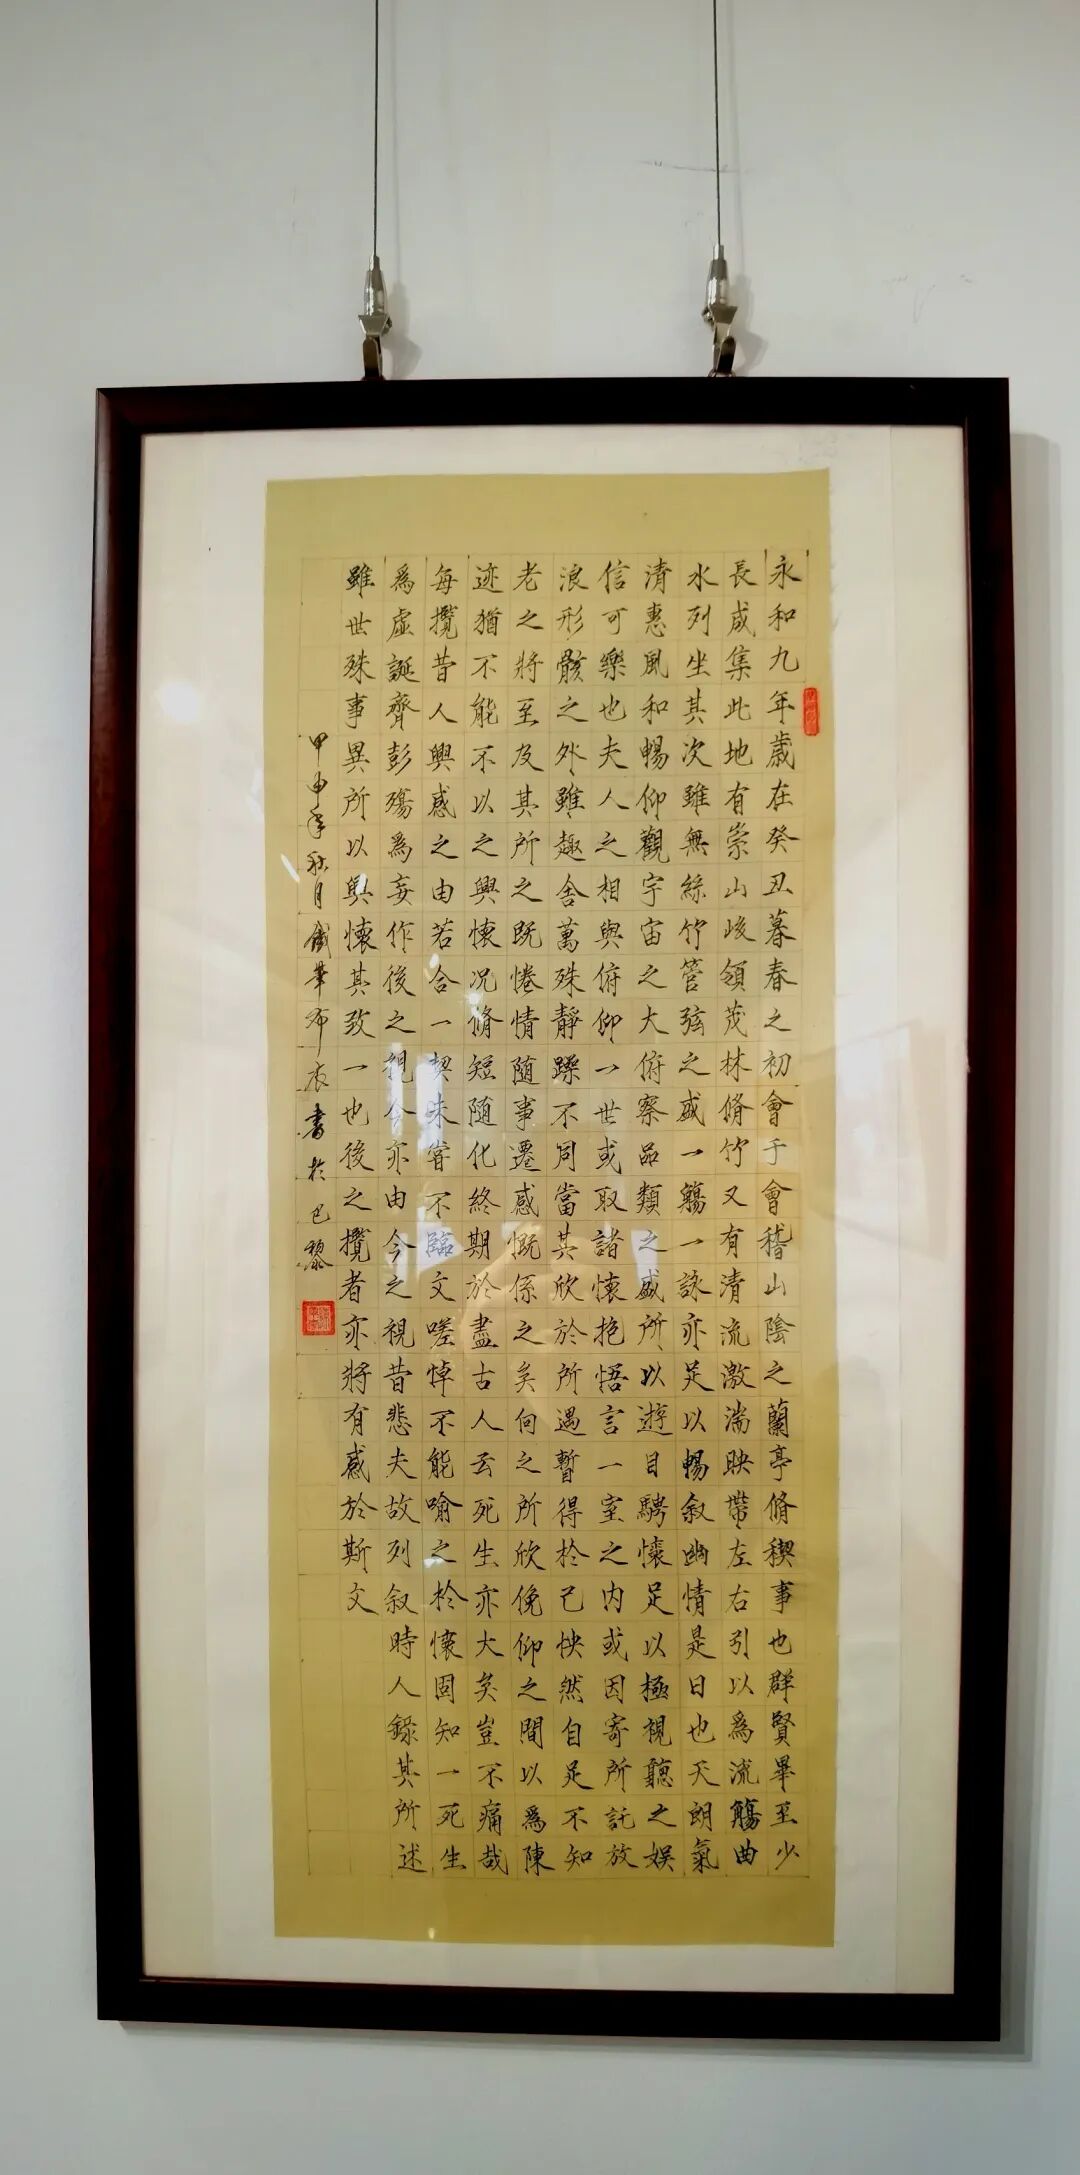 永和九年歲在癸丑暮春之初會于會稽山陰之蘭亭脩稧事也群賢畢至少
長咸集此地有崇山峻領茂林脩竹又有清流激湍映帶左右引以為流觴曲
水列坐其次雖無絲竹管弦之盛一觴一詠亦足以暢叙幽情是日也天朗氣
清惠風和暢仰觀宇宙之大俯察品類之盛所以遊目騁懷足以極視聽之娛
信可樂也夫人之相與俯仰一世或取諸懷抱悟言一室之內或因寄所託放
浪形骸之外雖趣舍萬殊靜躁不同當其欣於所遇暫得於己怏然自足不知
老之將至及其所之既惓情随事遷感慨係之矣向之所欣俛仰之閒以為陳
迹猶不能不以之興懷况脩短随化終期於盡古人云死生亦大矣豈不痛哉
每攬昔人興感之由若合一契未甞不臨文嗟悼不能喻之於懷固知一死生
為虛誕齊彭殤為妄作後之視今亦由今之視昔悲夫故列叙時人錄其所述
雖世殊事異所以興懷其致一也後之攬者亦將有感於斯文
甲申年秋月鐵筆布衣書於巴黎